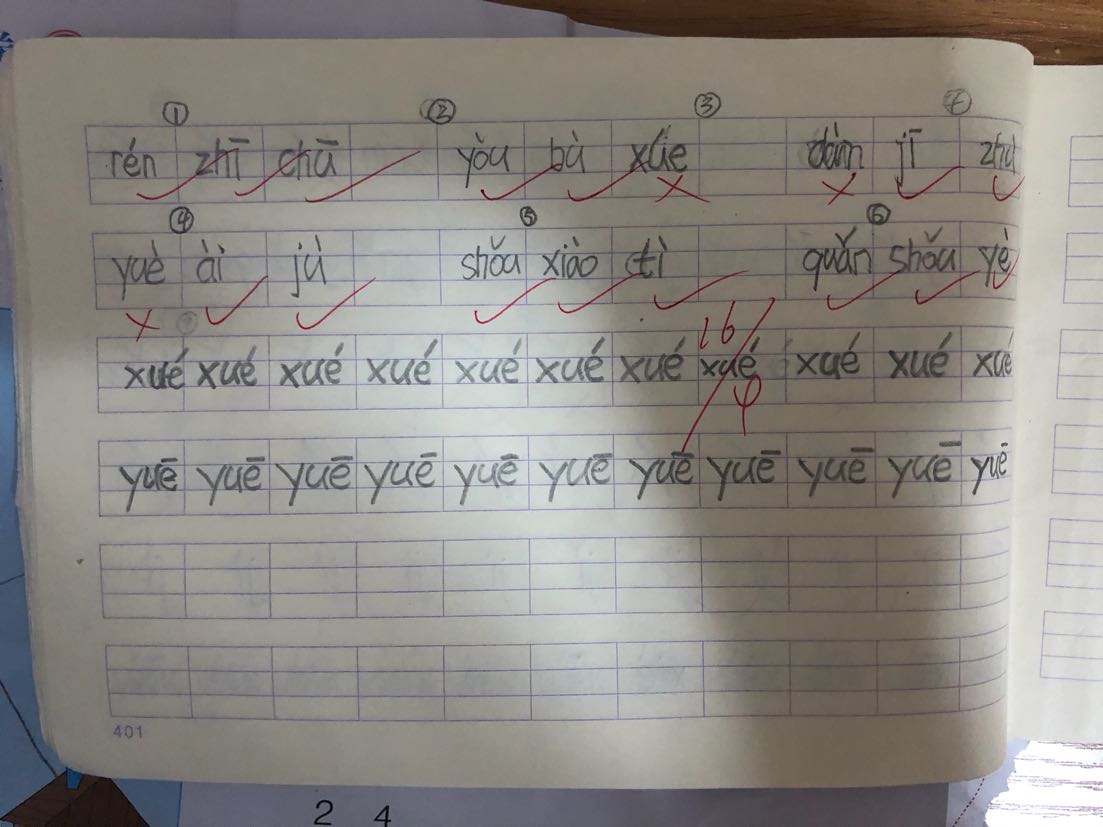 ① ② ③
rén zhī chū yòu bù xúe dàn jī
④ ⑤ ⑥
yuè ài jù shǒu xiào tì quǎn shǒu yè
16
xué xué xué xué xué xué xué xué xué xué xué
yuē yuē yuē yuē yuē yuē yuē yuē yuē yuē yuē
401
2 4